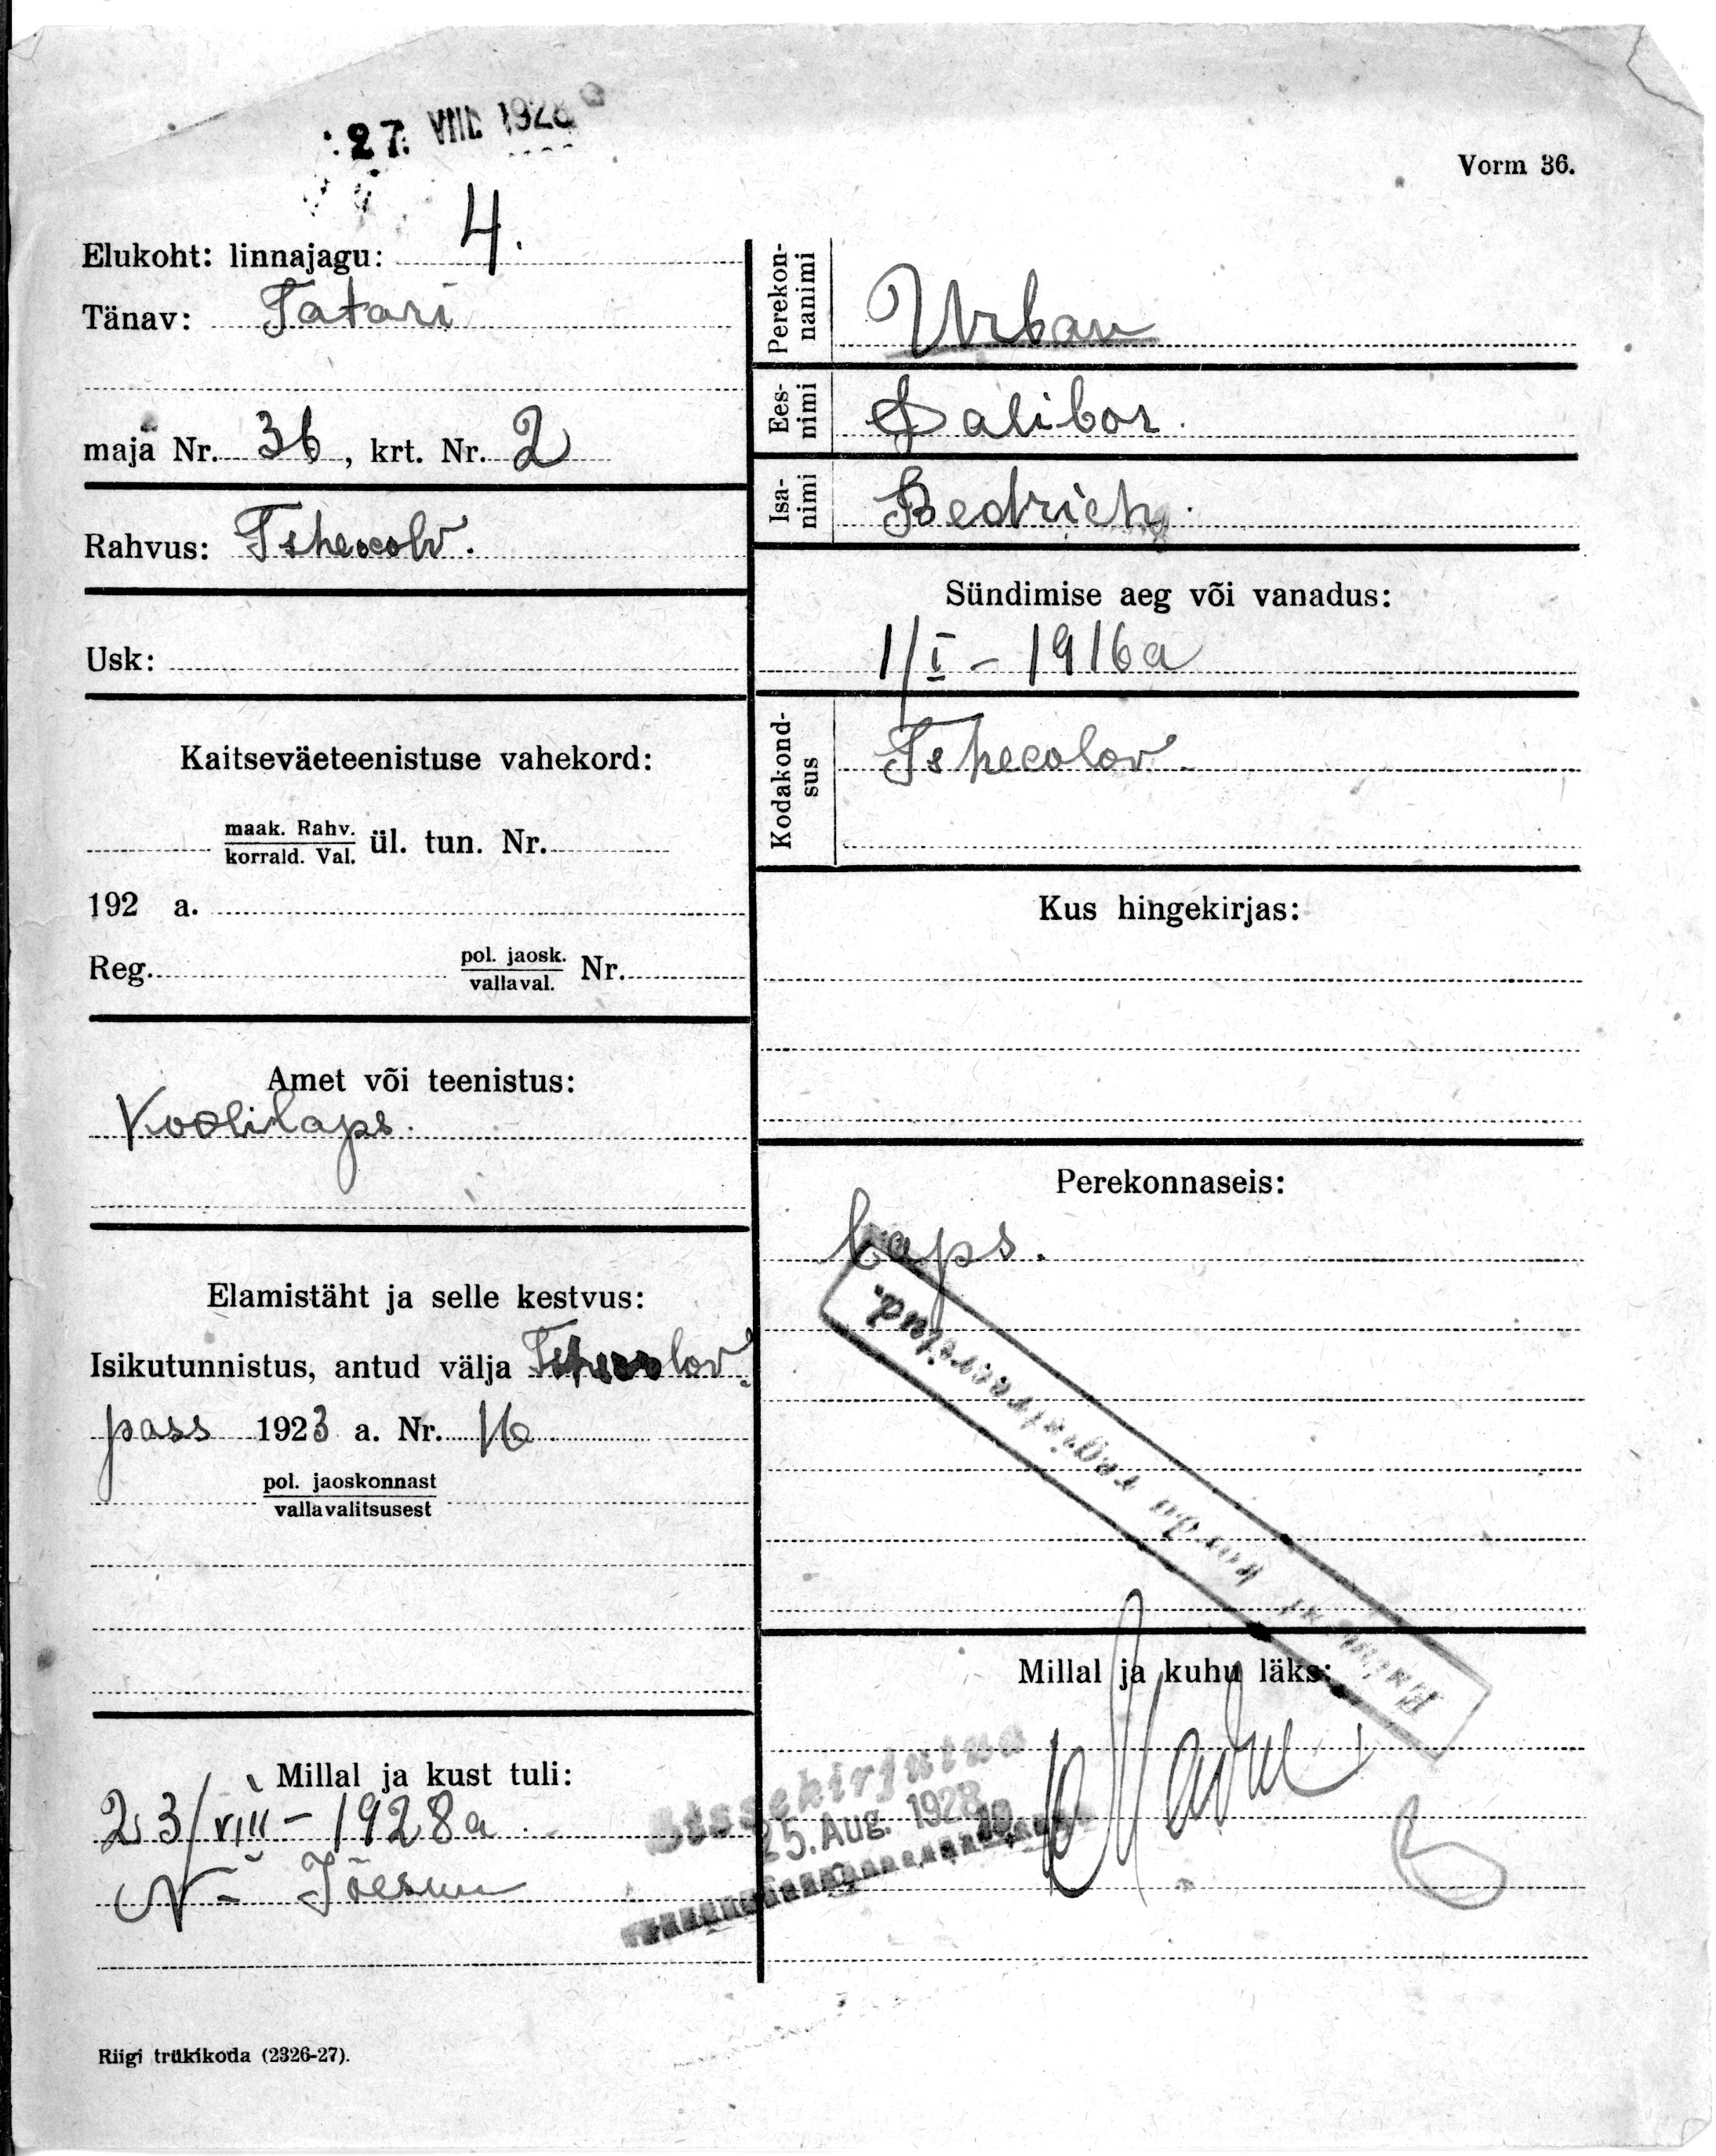 27. VIII 1928
Vorm 36.
Elukoht: linnajagu: 4.
Tänav: Tatari
maja Nr. 36, krt. Nr. 2
Rahvus: Tshecolv.
Usk:
Kaitseväeteenistuse vahekord:
maak. Rahv.
korrald. Val.
ül. tun. Nr.
192 a.
Reg. pol. jaosk. Nr.
vallaval.
Amet või teenistus:
Koolilaps.
Elamistäht ja selle kestvus:
Isikutunnistus, antud välja Tshecolov.
pass 1923 a. Nr. 16
pol. jaoskonnast
vallavalitsusest
Millal ja kust tuli:
23/VIII – 1928a
N - Jõesuu
Perekon-
nanimi
Urban
Ees-
nimi
Dalibor.
Isa-
nimi
Bedrich.
Sündimise aeg või vanadus:
1/I – 1916a
Kodakond-
sus
Tshecolov.
Kus hingekirjas:
Perekonnaseis:
Laps.
korda registreeritud.
Millal ja kuhu läks:
Sissekirjutus
25. Aug. 1928
Riigi trükikoda (2326-27).